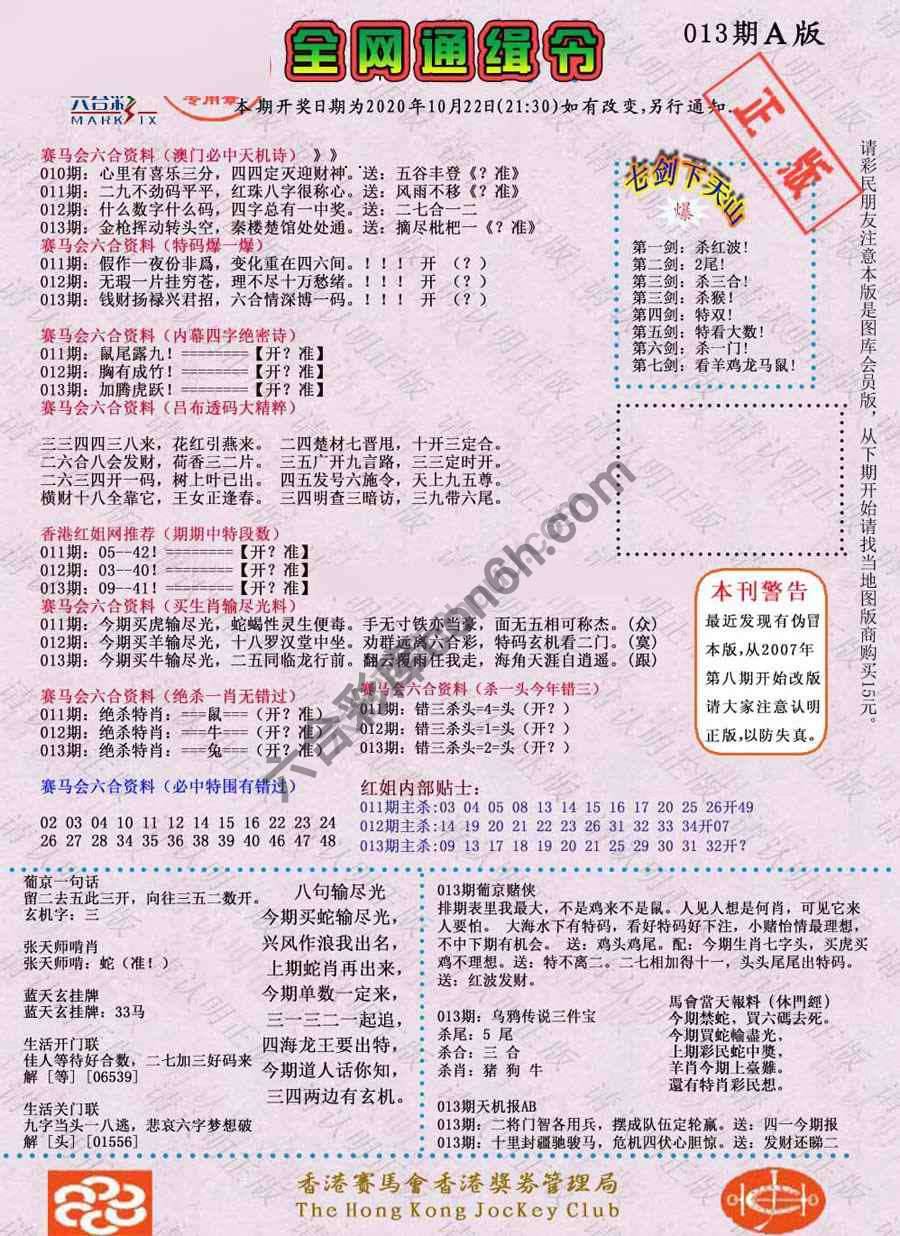 全网通缉令
013期A版
六合彩
MARK SIX
专用章
本期开奖日期为2020年10月22日(21:30)如有改变,另行通知.
正版
赛马会六合资料（澳门必中天机诗）》》
010期：心里有喜乐三分，四四定灭迎财神。送：五谷丰登《？准》
011期：二九不劲码平平，红珠八字很称心。送：风雨不移《？准》
012期：什么数字什么码，四字总有一中奖。送：二七合一二
013期：金枪挥动转头空，秦楼楚馆处处通。送：摘尽枇杷一《？准》
赛马会六合资料（特码爆一爆）
011期：假作一夜份非爲，变化重在四六间。！！！ 开 （？）
012期：无瑕一片挂穷苍，理不尽十万愁绪。！！！ 开 （？）
013期：钱财扬禄兴君招，六合情深博一码。！！！ 开 （？）
赛马会六合资料（内幕四字绝密诗）
011期：鼠尾露九！========【开？准】
012期：胸有成竹！========【开？准】
013期：加腾虎跃！========【开？准】
赛马会六合资料（吕布透码大精粹）
三三四四三八来，花红引燕来。 二四楚材七晋甩，十开三定合。
二六合八会发财，荷香三二片。 三五广开九言路，三三定时开。
二六三四开一码，树上叶已出。 四五发号六施令，天上九五尊。
横财十八全靠它，王女正逢春。 三四明查三暗访，三九带六尾。
香港红姐网推荐（期期中特段数）
011期：05--42！========【开？准】
012期：03--40！========【开？准】
013期：09--41！========【开？准】
赛马会六合资料（买生肖输尽光料）
011期：今期买虎输尽光，蛇蝎性灵生便毒。手无寸铁亦当豪，面无五相可称杰。(众)
012期：今期买羊输尽光，十八罗汉堂中坐。劝群远离六合彩，特码玄机看二门。(寞)
013期：今期买牛输尽光，二五同临龙行前。翻云覆雨任我走，海角天涯自逍遥。(跟)
赛马会六合资料（绝杀一肖无错过）
011期：绝杀特肖：===鼠===（开？准）
012期：绝杀特肖：===牛===（开？准）
013期：绝杀特肖：===兔===（开？准）
赛马会六合资料（杀一头今年错三）
011期：错三杀头=4=头（开？）
012期：错三杀头=1=头（开？）
013期：错三杀头=2=头（开？）
赛马会六合资料（必中特围有错过）
02 03 04 10 11 12 14 15 16 22 23 24
26 27 28 34 35 36 38 39 40 46 47 48
红姐内部贴士：
011期主杀:03 04 05 08 13 14 15 16 17 20 25 26开49
012期主杀:14 19 20 21 22 23 26 31 32 33 34开07
013期主杀:09 13 17 18 19 20 21 25 29 30 31 32开？
七剑下天山
爆
第一剑：杀红波！
第二剑：2尾！
第三剑：杀三合！
第三剑：杀猴！
第四剑：特双！
第五剑：特看大数！
第六剑：杀一门！
第七剑：看羊鸡龙马鼠！
请彩民朋友注意本版是图库会员版，从下期开始请找当地图版商购买15元。
本刊警告
最近发现有伪冒
本版,从2007年
第八期开始改版
请大家注意认明
正版,以防失真。
六合彩库cnn6h.com
葡京一句话
留二去五此三开，向往三五二数开。
玄机字：三
张天师啃肖
张天师啃：蛇（准！）
蓝天玄挂牌
蓝天玄挂牌：33马
生活开门联
佳人等待好合数，二七加三好码来
解 [等] [06539]
生活关门联
九字当头一八逃，悲哀六字梦想破
解 [头] [01556]
八句输尽光
今期买蛇输尽光，
兴风作浪我出名，
上期蛇肖再出来，
今期单数一定来，
三一三二一起追，
四海龙王要出特，
今期道人话你知，
三四两边有玄机。
013期葡京赌侠
排期表里我最大，不是鸡来不是鼠。人见人想是何肖，可见它来
人要怕。 大海水下有特码，看好特码好下注，小赌怡情最理想，
不中下期有机会。 送：鸡头鸡尾。配：今期生肖七字头，买虎买
鸡不理想。送：特不离二。二七相加得十一，头头尾尾出特码。
送：红波发财。
013期：乌鸦传说三件宝
杀尾：5 尾
杀合：三 合
杀肖：猪 狗 牛
馬會當天報料（休門經）
今期禁蛇，買六碼去死。
今期買蛇輸盡光，
上期彩民蛇中獎，
羊肖今期上臺難。
還有特肖彩民想。
013期天机报AB
013期：二将门智各用兵，摆成队伍定轮赢。送：四一今期报
013期：十里封疆驰骏马，危机四伏心胆惊。送：发财还睇二
香港賽馬會香港獎券管理局
The Hong Kong JocKey Club